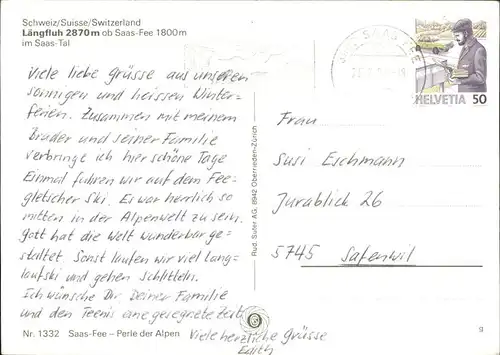 Schweiz/Suisse/Switzerland
Längfluh 2870 m ob Saas-Fee 1800 m
im Saas-Tal
Viele liebe grüsse aus unseren
sonnigen und heissen Winter-
ferien. Zusammen mit meinem
Bruder und seiner Familie
verbringe ich hier schöne Tage
Einmal fuhren wir auf dem Fee-
gletscher Ski. Es war herrlich so
mitten in der Alpenwelt zu sein.
Gott hat die Welt wunderbar ge-
staltet. Sonst laufen wir viel Lang-
laufski und gehen Schlitteln.
Ich wünsche Dir, Deiner Familie
und den Teenis eine gesegnete Zeit.
Viele herzliche Grüsse
Edith
Nr. 1332 Saas-Fee – Perle der Alpen
Rud. Suter AG, 8942 Oberrieden-Zürich
SAAS-FEE
HELVETIA 50
Frau
Susi Eschmann
Jurablick 26
5745 Safenwil
g